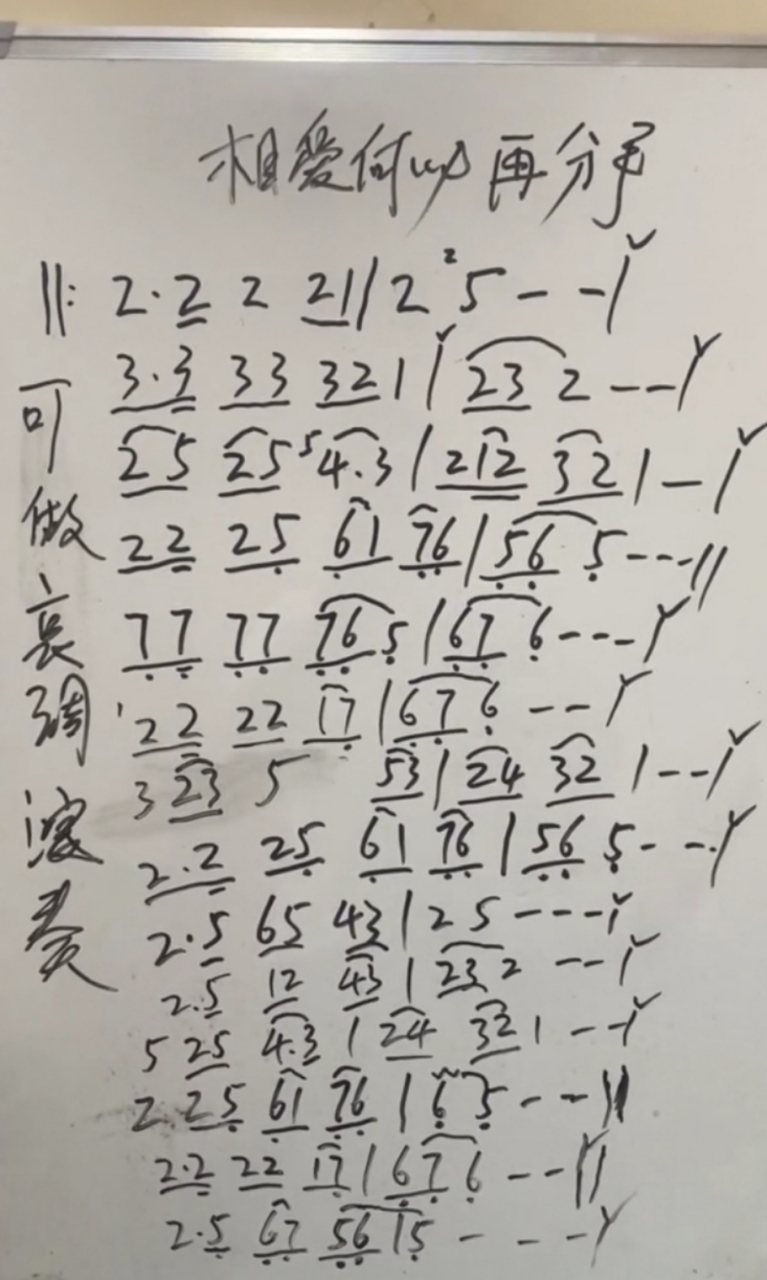 相爱何必再分手
‖: 2·2 2 21 | 2 ²5 - - |
3·3 33 321 | 23 2 - - |
25 25 ⁵4·3 | 212 32 1 - |
22 25 61 76 | 56 5 - - - ‖
77 77 765 | 67 6 - - - |
22 22 17 | 67 6 - - |
3 23 5 53 | 24 32 1 - - |
2·2 25 61 76 | 56 5 - - - |
2·5 65 43 | 25 - - - |
2·5 12 43 | 23 2 - - |
5 25 4·3 | 24 32 1 - - |
2·25 61 76 | 6 5 - - ‖
2·2 22 17 | 67 6 - - ‖
2·5 67 56 15 - - - |
可做哀调演奏